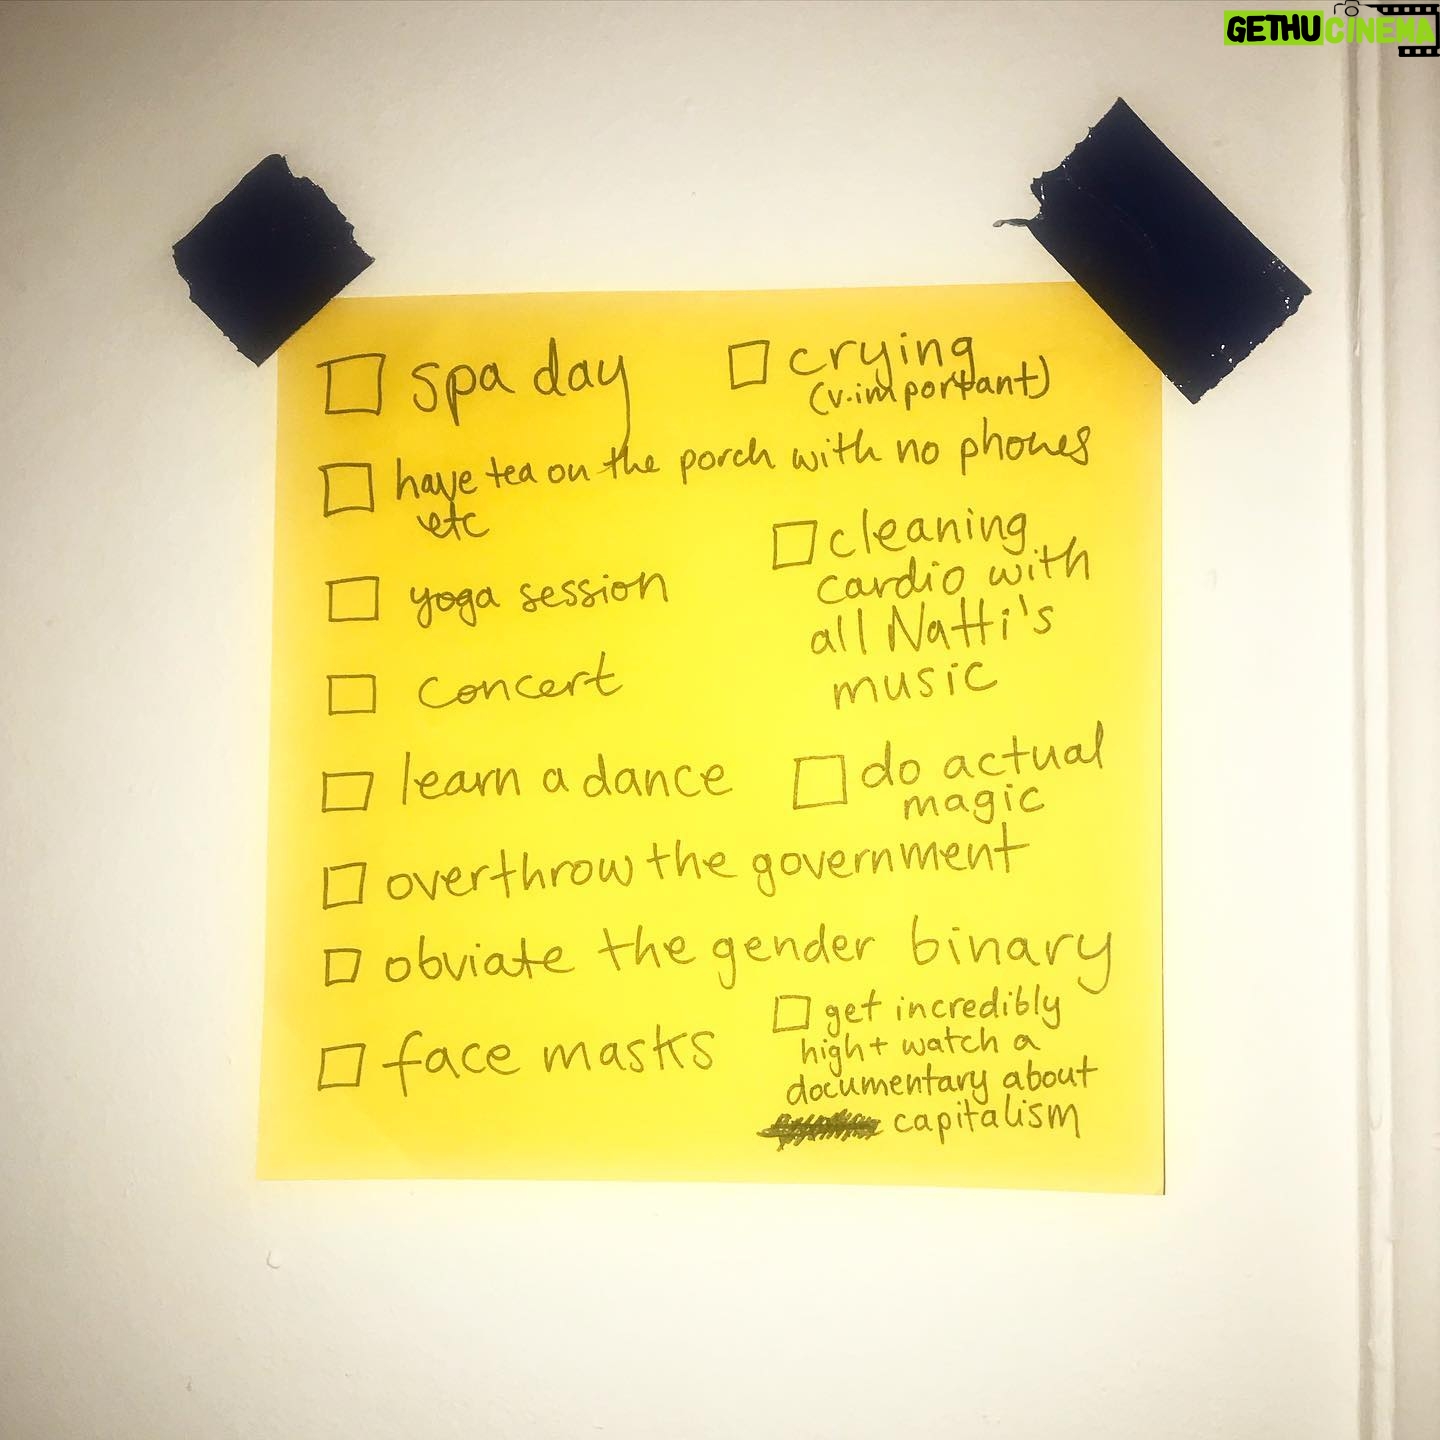 GETHUCINEMA
spa day
crying
(v.important)
have tea on the porch with no phones
etc
cleaning
cardio with
all Natti's
music
yoga session
concert
learn a dance
do actual
magic
overthrow the government
obviate the gender binary
face masks
get incredibly
high + watch a
documentary about
capitalism